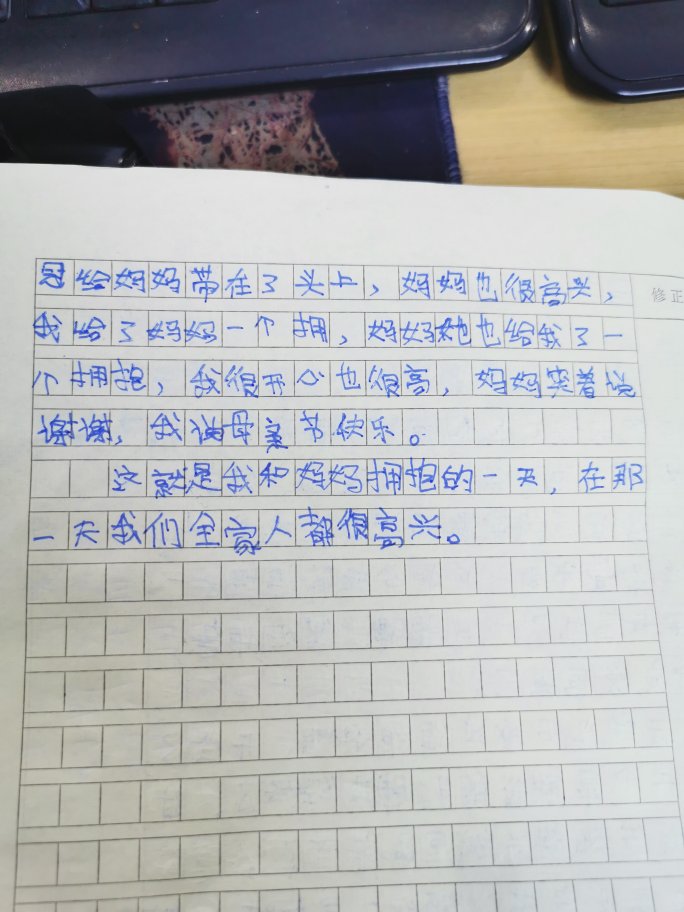 冠给妈妈带在了头上，妈妈也很高兴，
修正
我给了妈妈一个拥，妈妈她也给我了一
个拥抱，我很开心也很高，妈妈笑着说
谢谢，我说母亲节快乐。
这就是我和妈妈拥抱的一天，在那
一天我们全家人都很高兴。